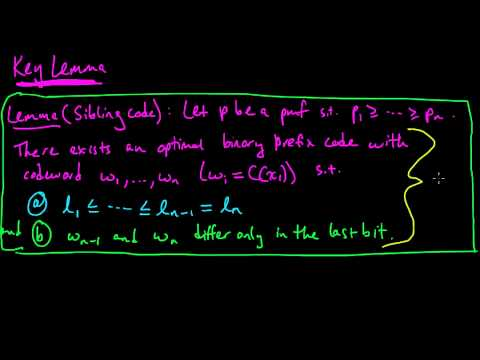 Key Lemma
Lemma (Sibling code): Let p be a pmf s.t. p₁ ≥ ⋯ ≥ pₙ.
There exists an optimal binary prefix code with
codeword w₁,…,wₙ (wᵢ = C(xᵢ)) s.t.
ⓐ l₁ ≤ ⋯ ≤ lₙ₋₁ = lₙ
and ⓑ wₙ₋₁ and wₙ differ only in the last bit.